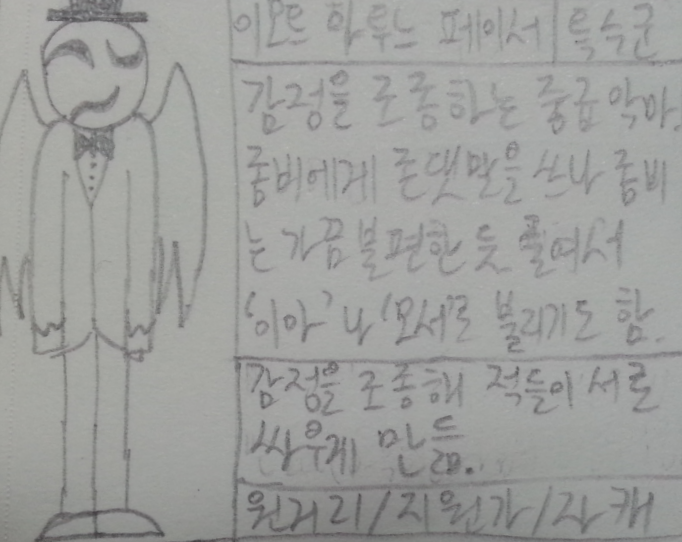 이모트 하투느 페이서 특수군
감정을 조종하는 중급 악마.
좀비에게 존댓말을 쓰나 좀비
는 가끔 불편한 듯 줄여서
'이아'나 '모서'로 불리기도 함.
감정을 조종해 적들이 서로
싸우게 만듦.
원거리/지원가/자캐